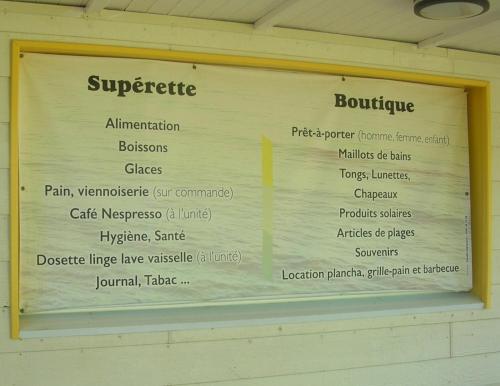 Supérette
Alimentation
Boissons
Glaces
Pain, viennoiserie (sur commande)
Café Nespresso (à l'unité)
Hygiène, Santé
Dosette linge lave vaisselle (à l'unité)
Journal, Tabac ...
Boutique
Prêt-à-porter (homme, femme, enfant)
Maillots de bains
Tongs, Lunettes,
Chapeaux
Produits solaires
Articles de plages
Souvenirs
Location plancha, grille-pain et barbecue